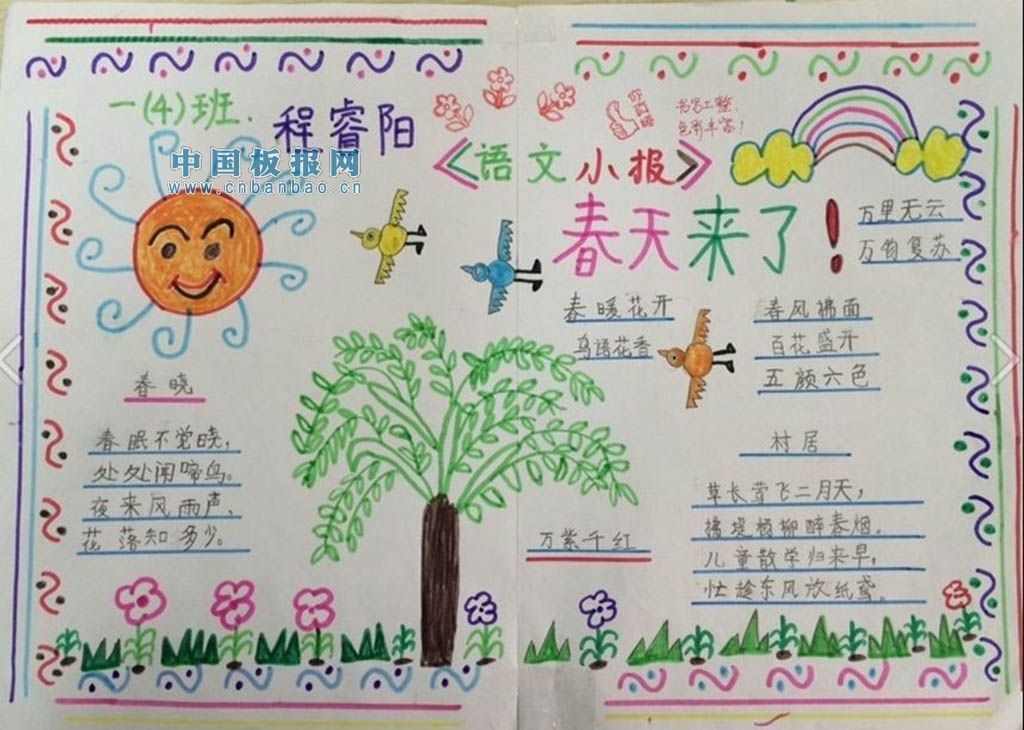 一(4)班.
程睿阳
中国板报网
www.cnbanbao.cn
《语文小报》
书写工整.
色彩丰富!
春天来了!
万里无云
万钧复苏
春暖花开
鸟语花香
春风拂面
百花盛开
五颜六色
春晓
春眠不觉晓,
处处闻啼鸟。
夜来风雨声,
花落知多少。
万紫千红
村居
草长莺飞二月天,
拂堤杨柳醉春烟。
儿童散学归来早,
忙趁东风放纸鸢。